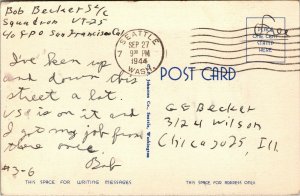 Bob Becker S1/C
Squadron VT-25
40 FPO San Francisco Cal
SEATTLE
SEP 27
7 30 PM
1944
WASH.
PLACE
ONE CENT
STAMP
HERE
I've been up
and down this
street a lot.
USE is on it and
I got my job from
there once.
Bob
#3-6
POST CARD
G E Becker
3124 Wilson
Chicago 25, Ill.
Johnston Co., Seattle, Washington
THIS SPACE FOR WRITING MESSAGES
THIS SPACE FOR ADDRESS ONLY